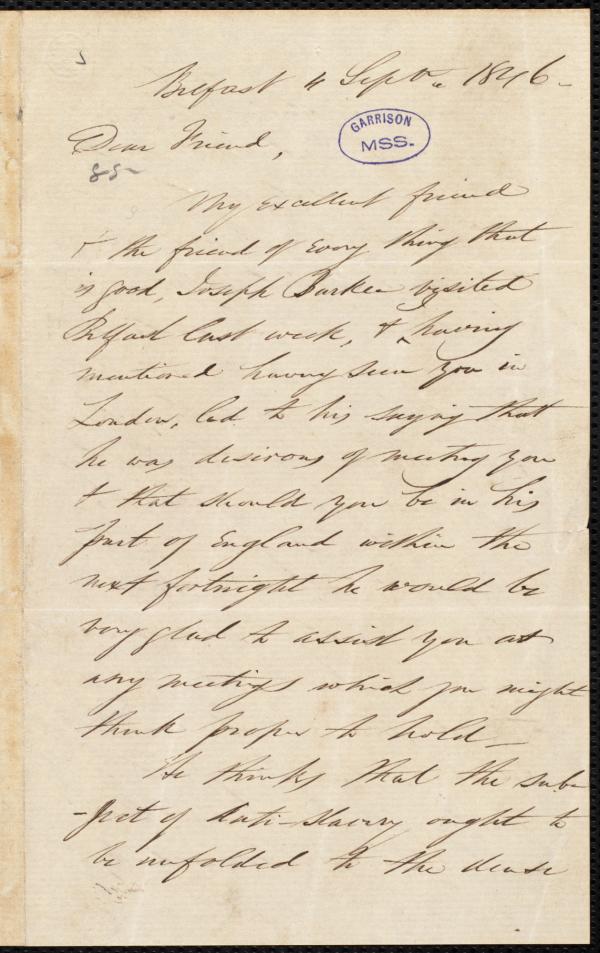 Belfast 4 Septr. 1846 -
GARRISON
MSS.
Dear Friend,
85-
My excellent friend
& the friend of every thing that
is good, Joseph Barker visited
Belfast last week, & having
mentioned having seen you in
London, led to his saying that
he was desirous of meeting you
& that should you be in his
part of England within the
next fortnight he would be
very glad to assist you at
any meetings which you might
think proper to hold -
He thinks that the sub-
-ject of Anti-slavery ought to
be unfolded to the dense